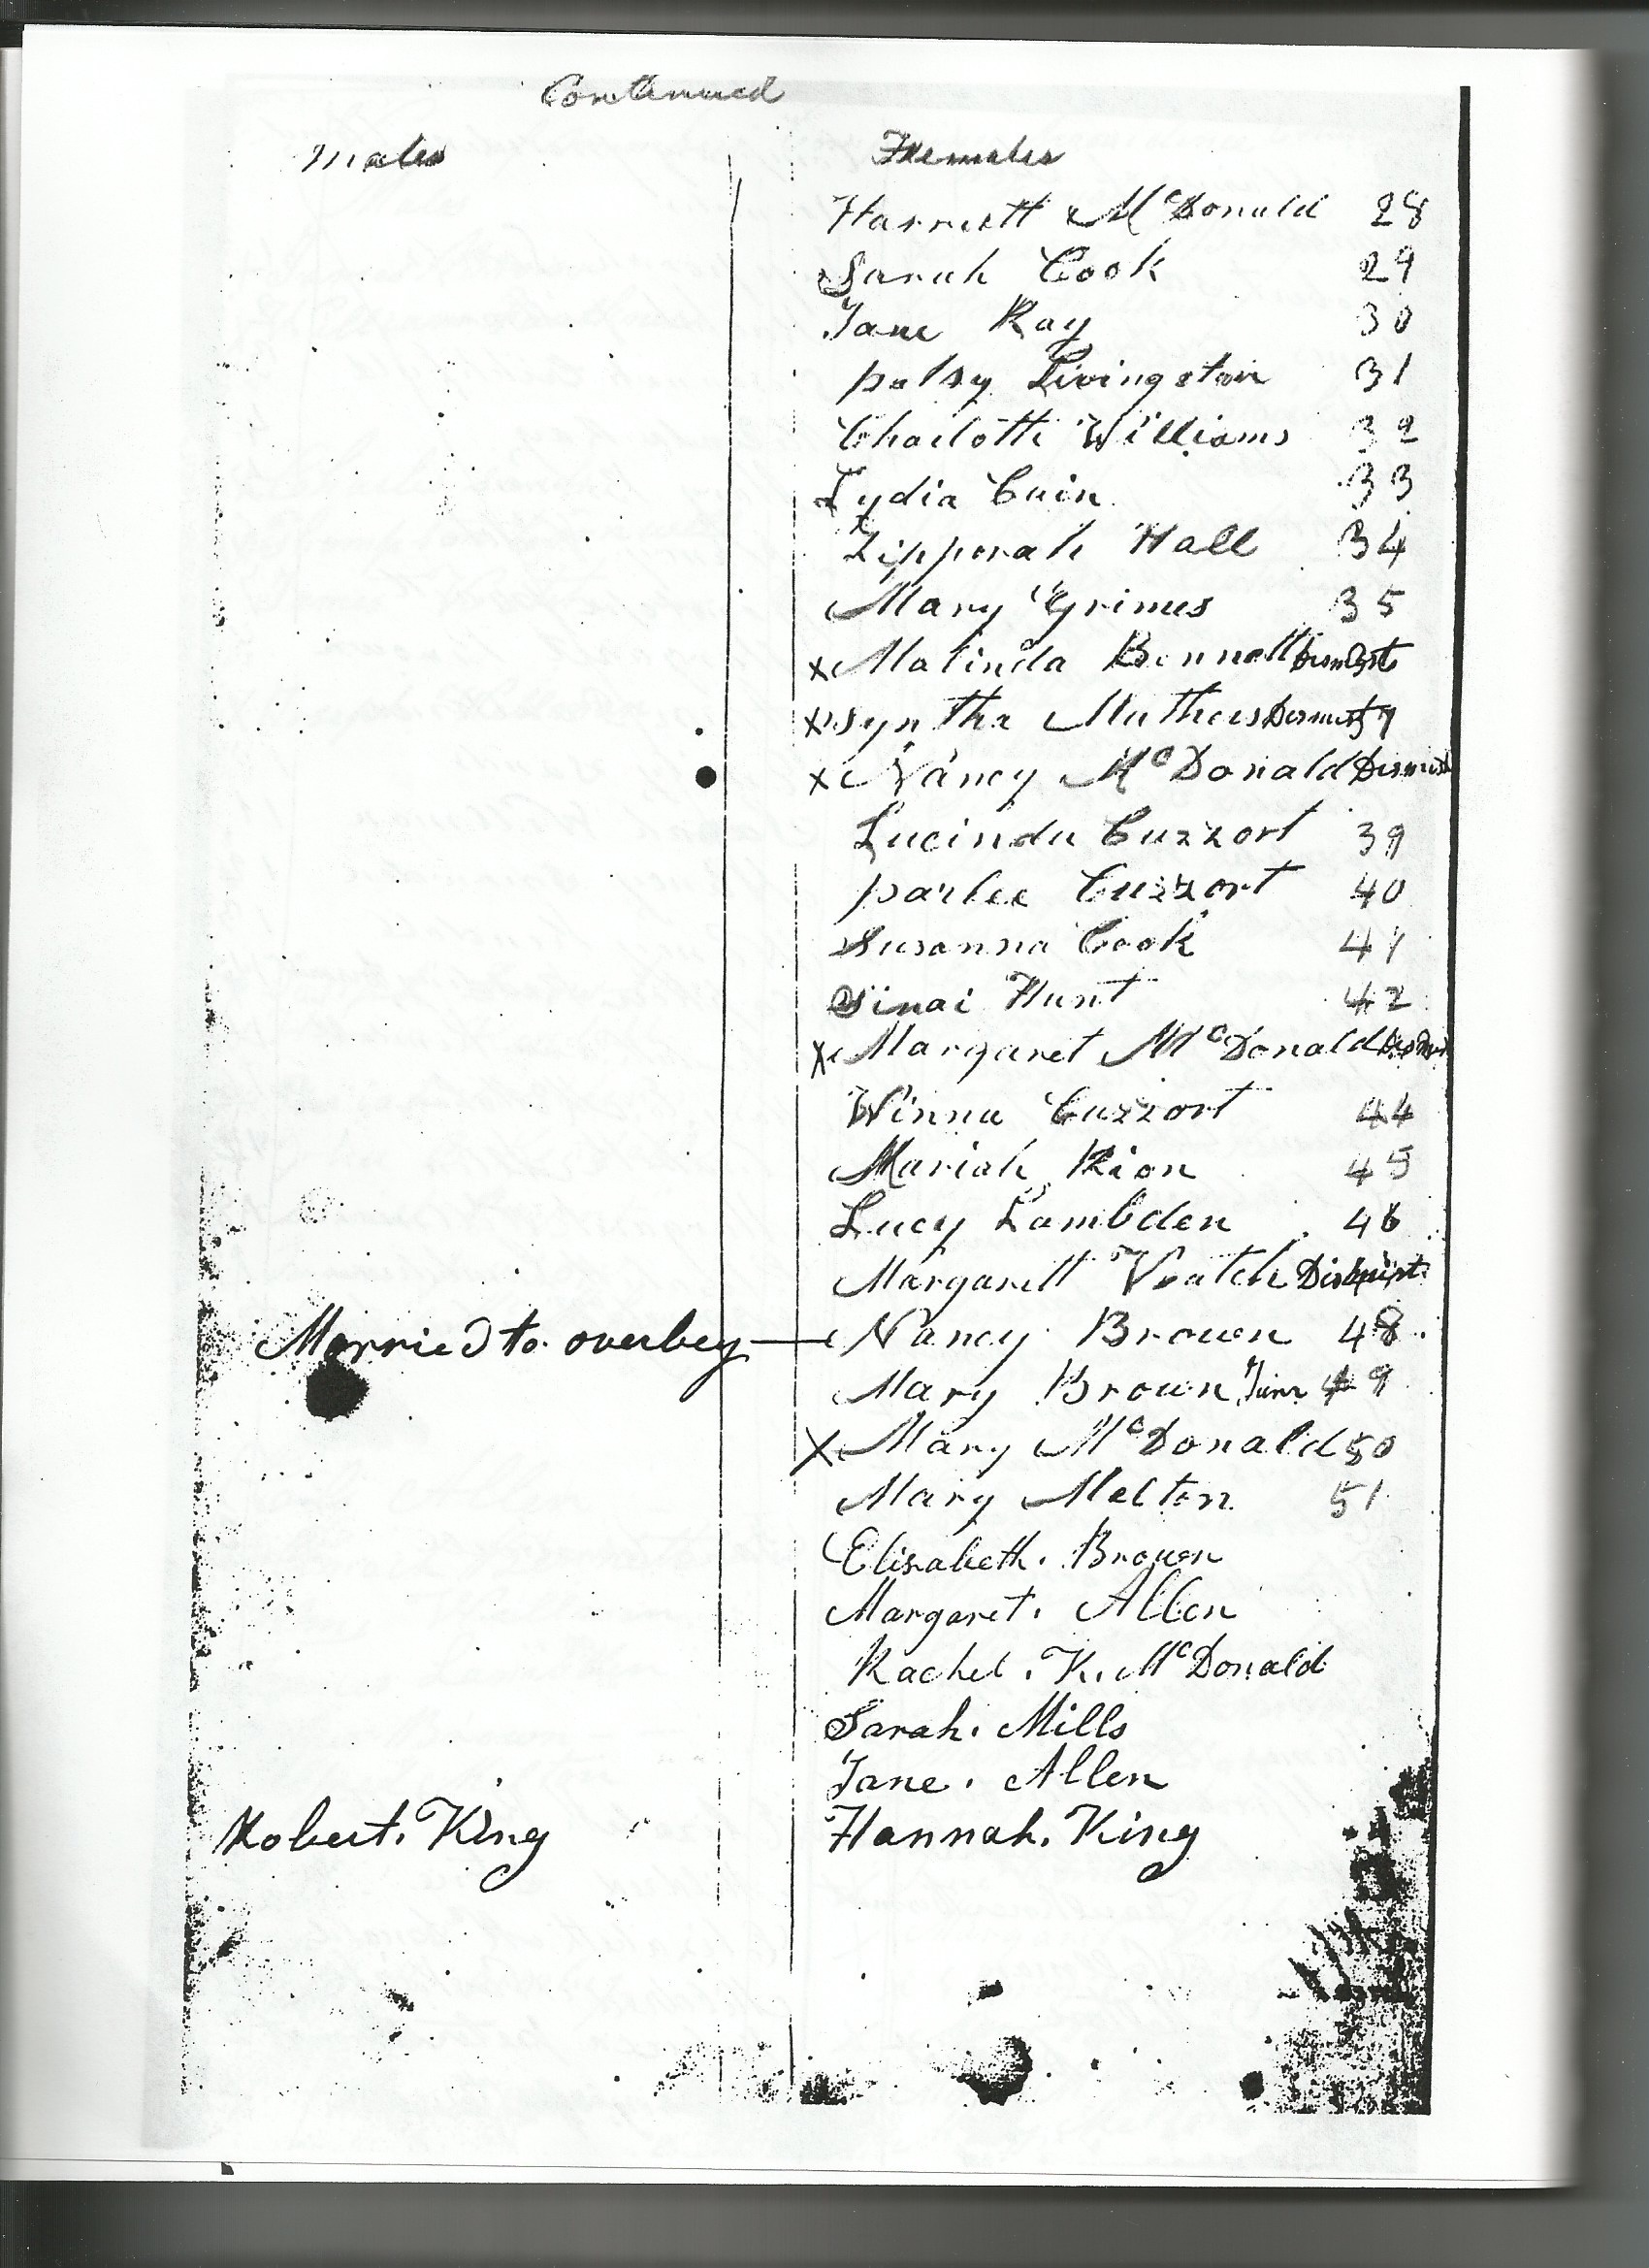 Continued
Males Females
Harriett McDonald 28
Sarah Cook 29
Jane Ray 30
patsy Livingston 31
Charlotte Williams 32
Lydia Cain 33
Zipporah Hall 34
Mary Grimes 35
x Malinda Bennett
x syntha Mathews Dismist 37
x Nancy McDonald Dismist
Lucinda Cuzzort 39
parlee Cuzzort 40
Susanna Cook 41
Sinai Hunt 42
x Margaret McDonald
Winna Cuzzort 44
Mariah Rion 45
Lucy Lambden 46
Margarett Veatch Dismist
Married to overbey — Nancy Brown 48
Mary Brown Junr 49
X Mary McDonald 50
Mary Melton 51
Elisabeth. Brown
Margaret. Allen
Rachel. K. McDonald
Sarah. Mills
Jane. Allen
Robert. King Hannah. King